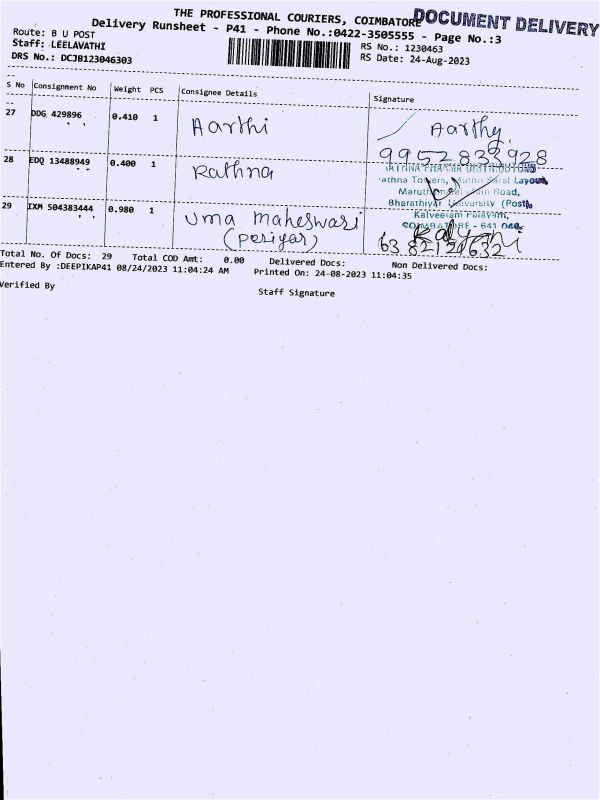 THE PROFESSIONAL COURIERS, COIMBATORE
DOCUMENT DELIVERY
Delivery Runsheet - P41 - Phone No.:0422-3505555 - Page No.:3
Route: B U POST
RS No.: 1230463
Staff: LEELAVATHI
RS Date: 24-Aug-2023
DRS No.: DCJB123046303
S No Consignment No Weight PCS Consignee Details Signature
27 DDG 429896 0.410 1 Aarthi Aarthy
9952833928
28 EDQ 13488949 0.400 1 Rathna
Towers, Layout,
Road,
Bharathiyar University (Post),
Kalveeram Palayam,
COIMBATORE - 641 046.
29 IXM 504383444 0.980 1 Uma maheswari
(periyar)
Total No. Of Docs: 29 Total COD Amt: 0.00 Delivered Docs: Non Delivered Docs:
Entered By :DEEPIKAP41 08/24/2023 11:04:24 AM Printed On: 24-08-2023 11:04:35
Verified By
Staff Signature